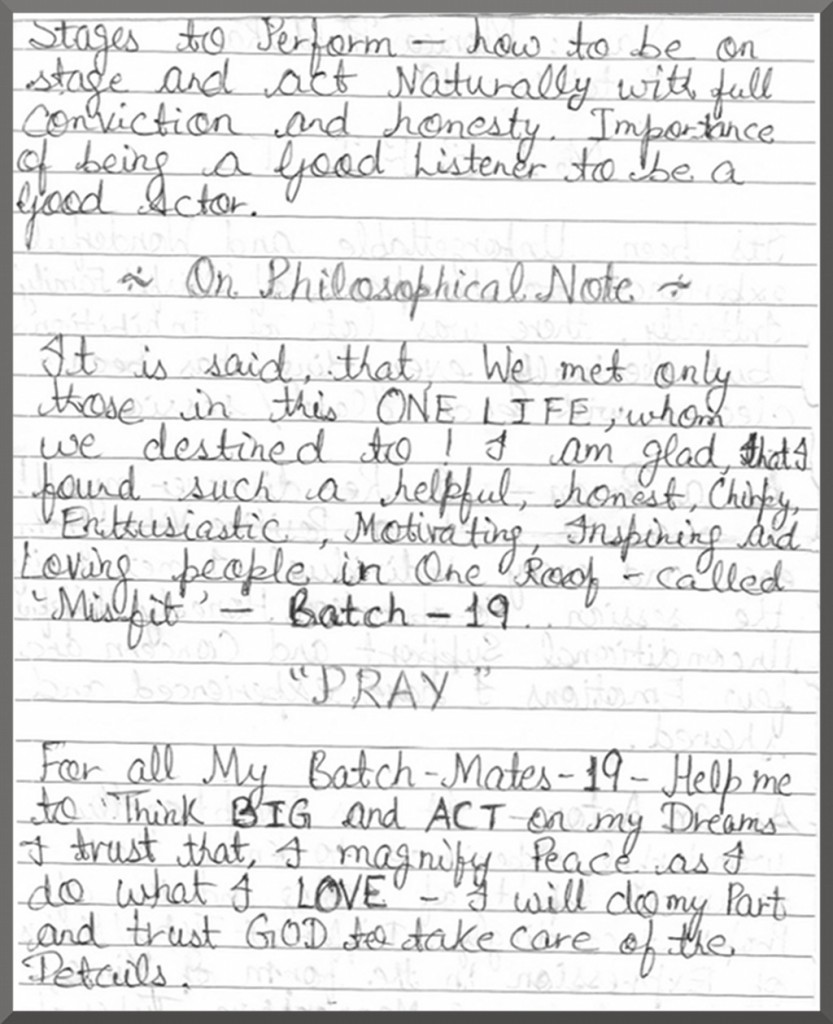 Stages to Perform - how to be on
stage and act Naturally with full
Conviction and honesty. Importance
of being a Good Listener to be a
Good Actor.
~ On Philosophical Note ~
It is said, that, We met only
those in this ONE LIFE, whom
we destined to! I am glad, that I
found such a helpful, honest, Chirpy,
Enthusiastic, Motivating, Inspiring and
Loving people in One Roof - Called
"Misfit" - Batch - 19.
"PRAY"
For all My Batch-Mates-19- Help me
to Think BIG and ACT on my Dreams
I trust that, I magnify Peace as I
do what I LOVE - I will do my Part
and trust GOD to take care of the
Details.